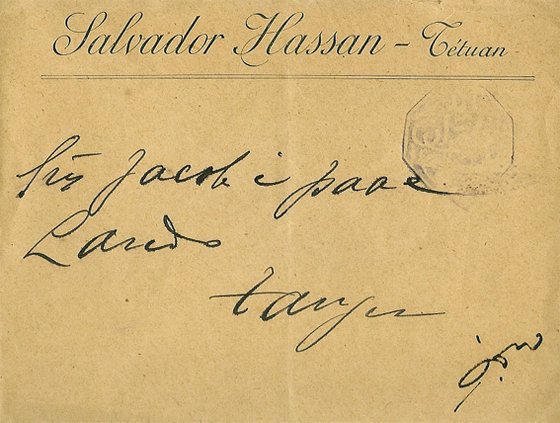 Salvador Hassan - Tétuan
Srs Jacob é Isaac
Laredo
Tanger